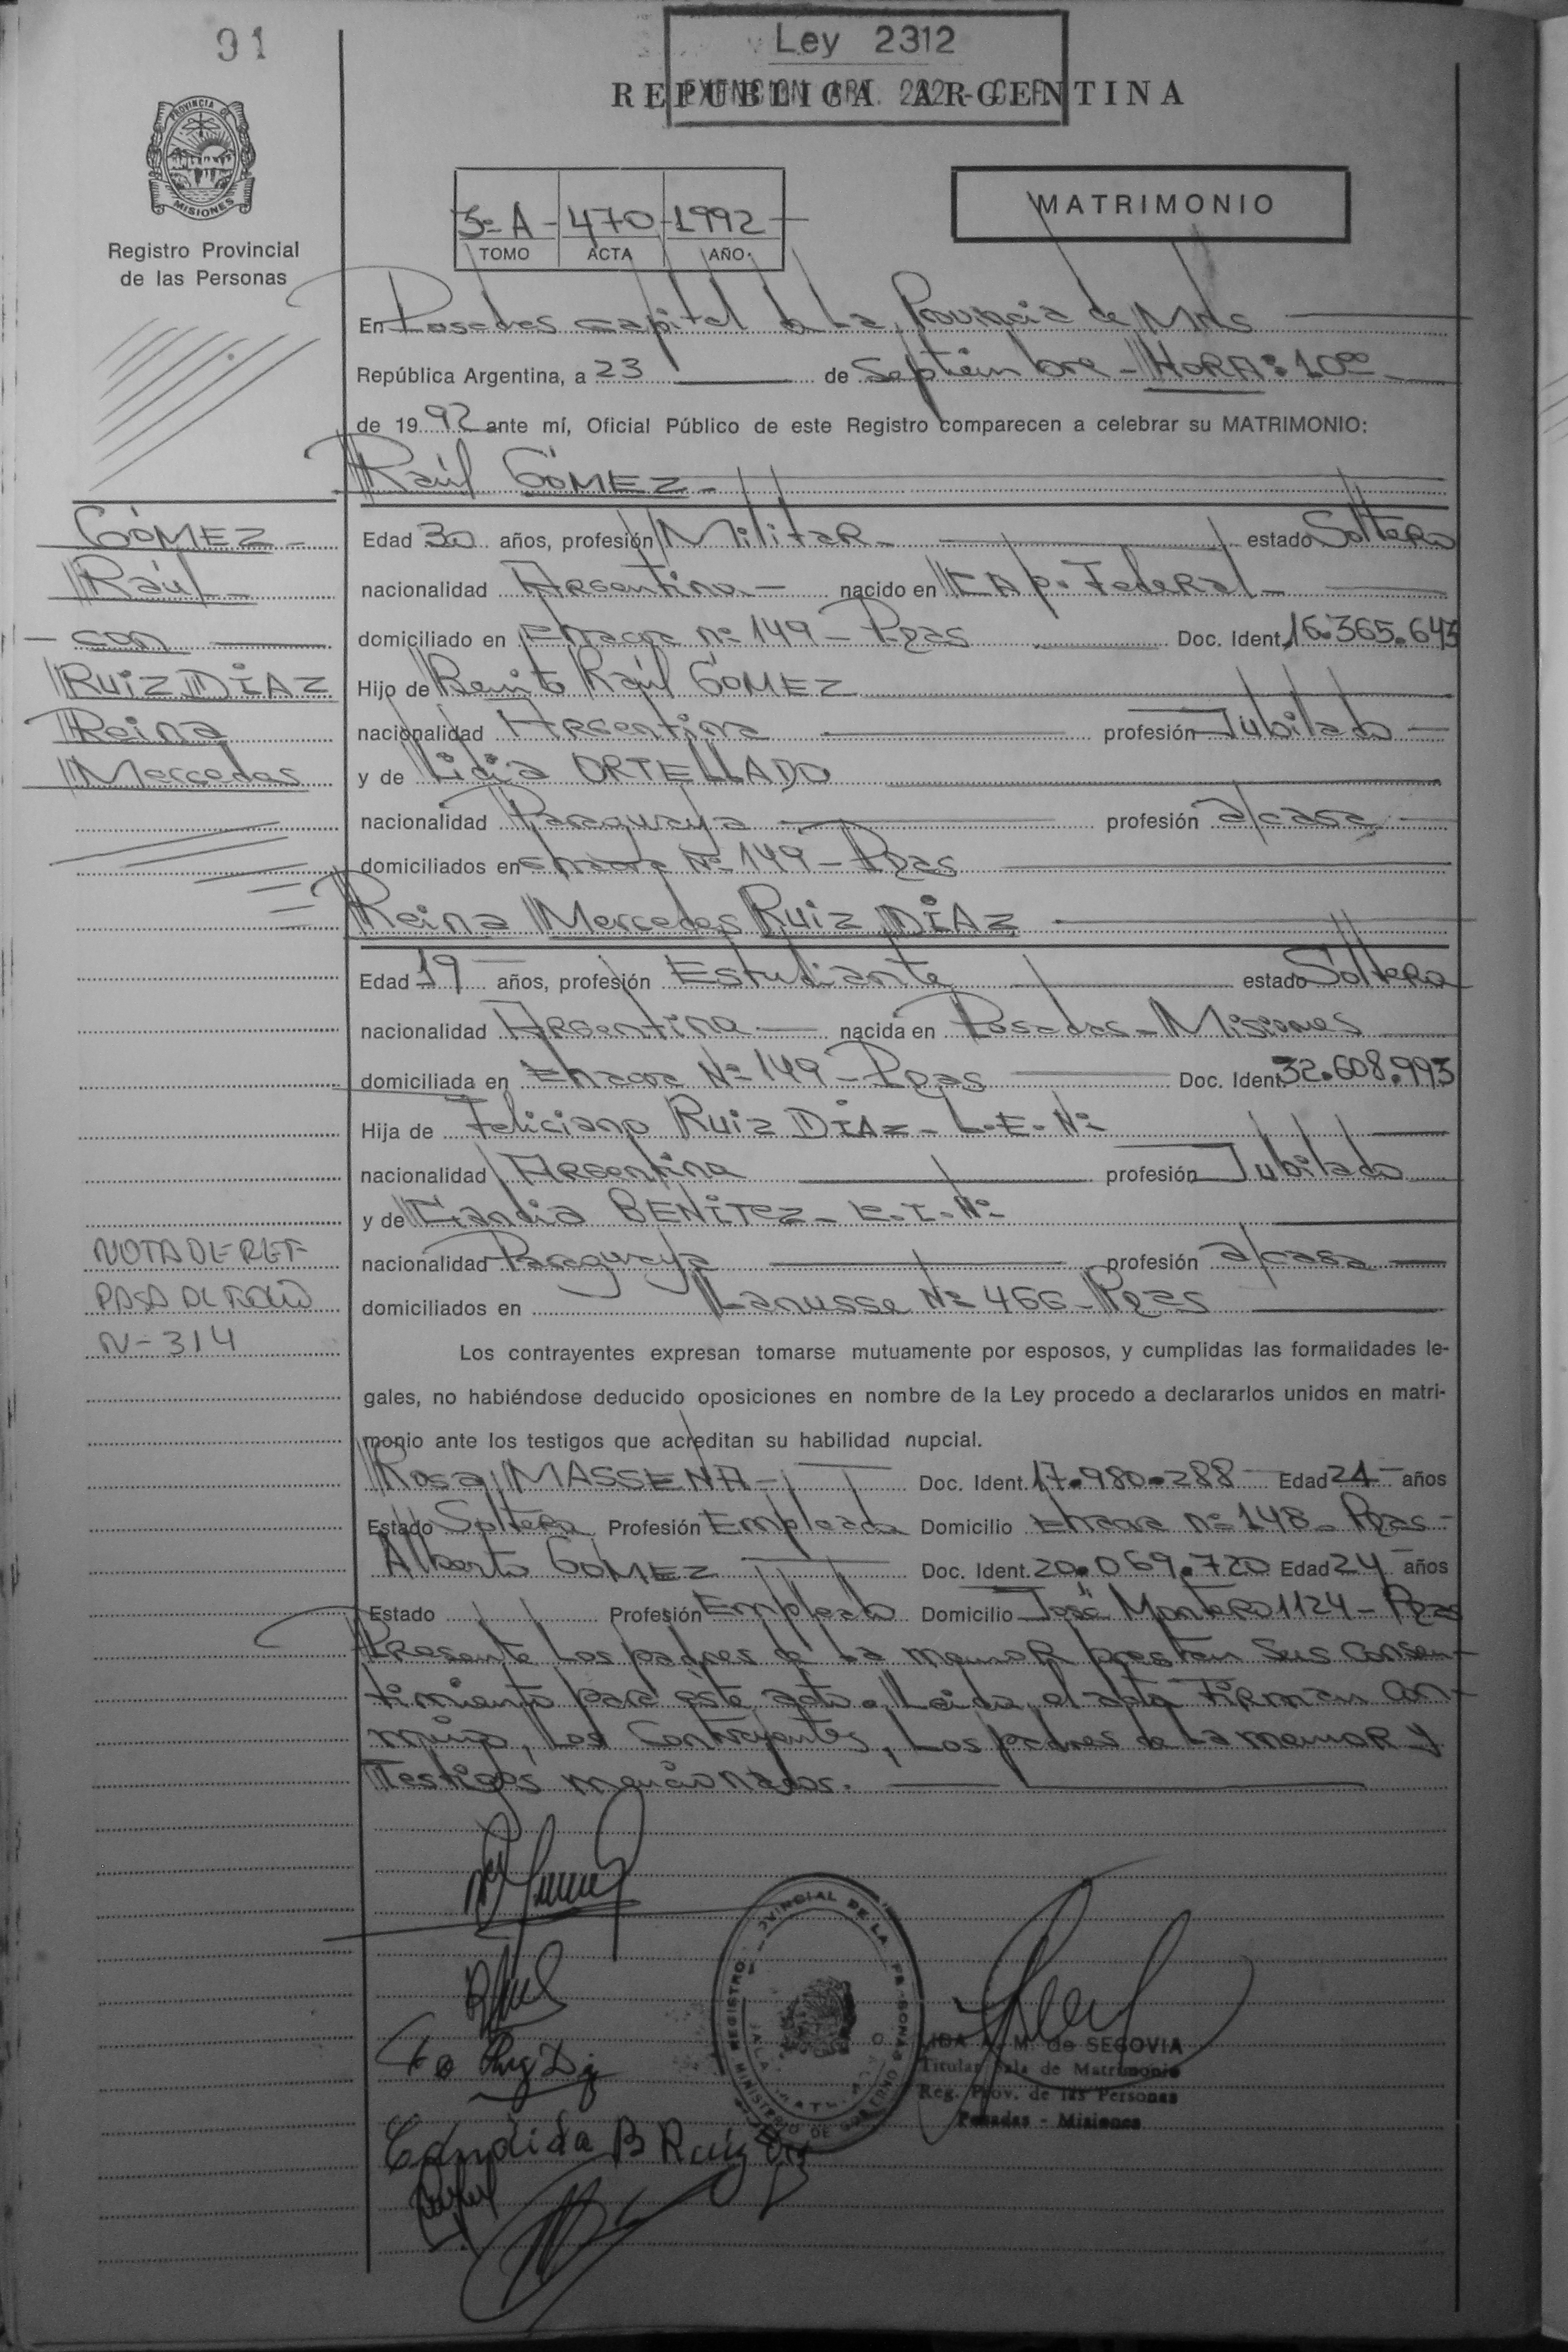 91
Ley 2312
EXENCION ART. 222 - C.F.
REPUBLICA ARGENTINA
PROVINCIA DE
MISIONES
Registro Provincial
de las Personas
MATRIMONIO
5º A - 470 - 1992 -
TOMO ACTA AÑO
En Posadas capital de La Provincia de Mnes
República Argentina, a 23 de Septiembre - HORA: 10 00
de 19 92 ante mí, Oficial Público de este Registro comparecen a celebrar su MATRIMONIO:
Raúl GÓMEZ -
GÓMEZ -
Raúl -
- con
RUIZ DIAZ
Reina
Mercedes
Edad 30 años, profesión Militar - estado Soltero
nacionalidad Argentina - nacido en CAp. Federal -
domiciliado en nº 149 - Pdas Doc. Ident. 16.365.643
Hijo de Benito Raúl GÓMEZ
nacionalidad Argentina profesión Jubilado -
y de Lidia ORTELLADO
nacionalidad Paraguaya profesión a/casa -
domiciliados en Nº 149 - Pdas
Reina Mercedes RUIZ DIAZ
Edad 19 años, profesión Estudiante estado Soltera
nacionalidad Argentina - nacida en Posadas - Misiones
domiciliada en Nº 149 - Pdas Doc. Ident. 32.608.993
Hija de Feliciano RUIZ DIAZ - L.E. Nº
nacionalidad Argentina profesión Jubilado
y de BENITEZ - C.I. Nº
nacionalidad Paraguaya profesión a/casa -
domiciliados en Lanusse Nº 466 - Pdas
NOTA DE REF
PASA AL FOLIO
N- 314
Los contrayentes expresan tomarse mutuamente por esposos, y cumplidas las formalidades le-
gales, no habiéndose deducido oposiciones en nombre de la Ley procedo a declararlos unidos en matri-
monio ante los testigos que acreditan su habilidad nupcial.
Rosa MASSENA - Doc. Ident. 17.980.288 Edad 24 años
Estado Soltera Profesión Empleada Domicilio nº 148 - Pdas -
Alberto GOMEZ Doc. Ident. 20.069.720 Edad 24 años
Estado Profesión Empleado Domicilio José Montero 1124 - Pdas
Presente Los padres de La menor prestan sus consen-
timiento para este acto. Leida el acta Firman con-
migo, Los Contrayentes, Los padres de La menor y
Testigos mencionados.
REGISTRO PROVINCIAL DE LAS PERSONAS
MINISTERIO DE GOBIERNO
LIDA A. M. de SEGOVIA
Titular Sala de Matrimonio
Reg. Prov. de las Personas
Posadas - Misiones
Candida B Ruiz Diaz